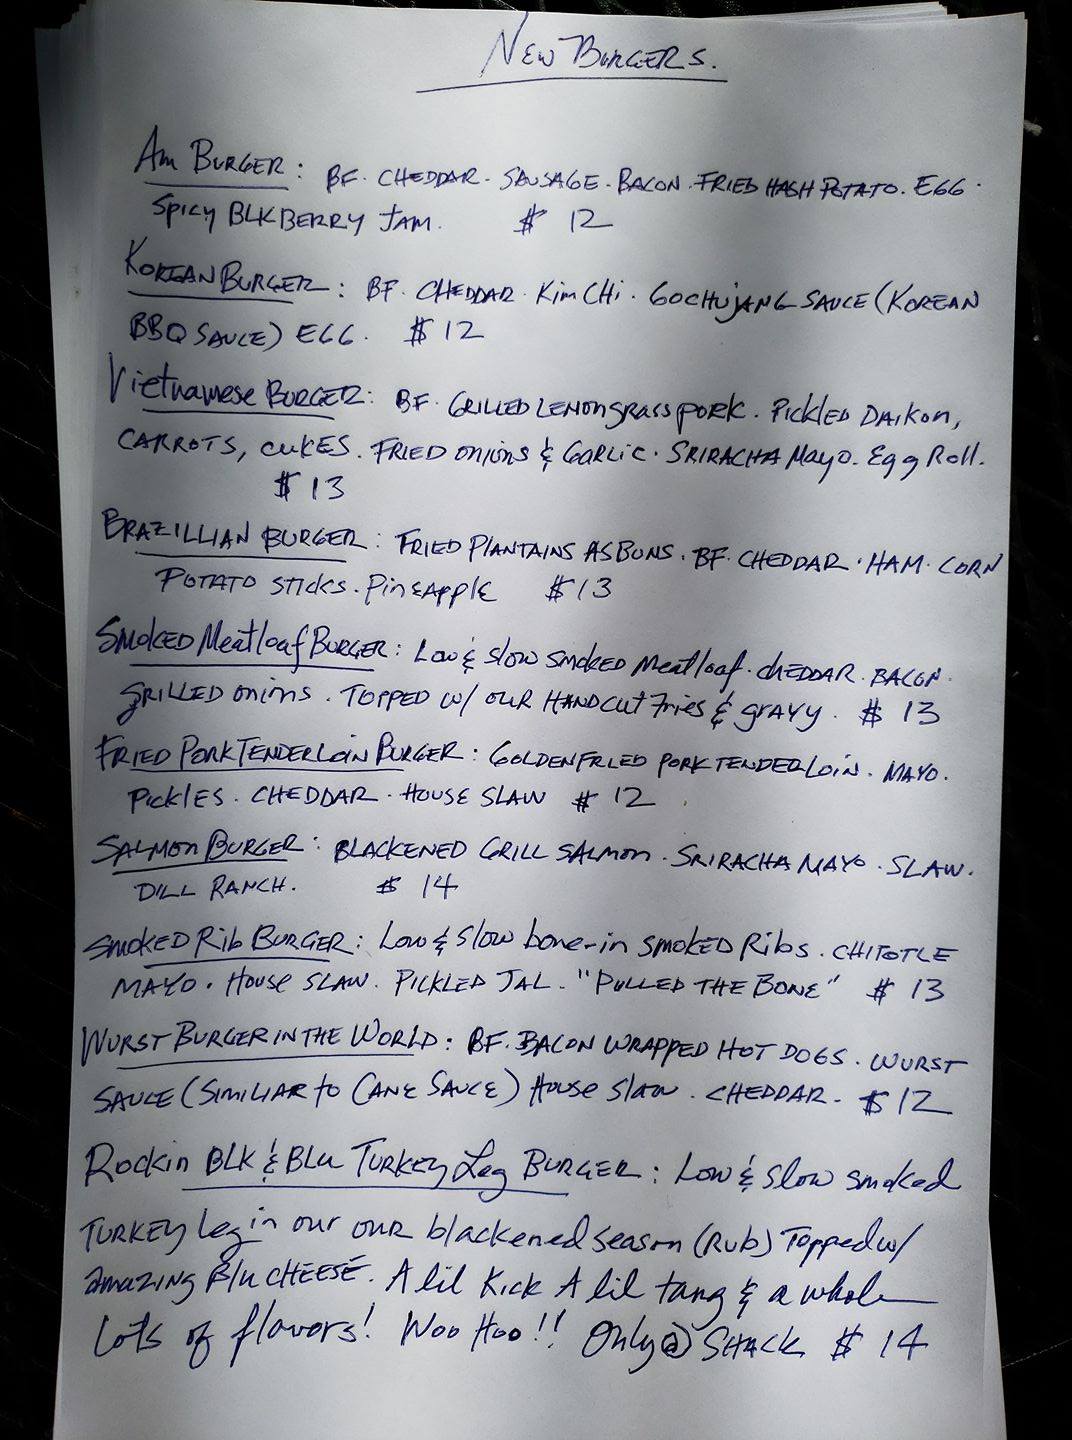 New Burgers.
Am Burger: BF. Cheddar. Sausage. Bacon. Fried Hash Potato. Egg.
Spicy Blkberry Jam. $12
Korean Burger: BF. Cheddar. Kim Chi. Gochujang Sauce (Korean
BBQ Sauce) Egg. $12
Vietnamese Burger: BF. Grilled Lemongrass pork. Pickled Daikon,
Carrots, cukes. Fried onions & Garlic. Sriracha Mayo. Egg Roll.
$13
Brazillian Burger: Fried Plantains as Buns. BF. Cheddar. Ham. Corn
Potato sticks. Pineapple $13
Smoked Meatloaf Burger: Low & slow smoked meatloaf. Cheddar. Bacon.
Grilled onions. Topped w/ our handcut fries & gravy. $13
Fried Pork Tenderloin Burger: Golden Fried Pork Tenderloin. Mayo.
Pickles. Cheddar. House Slaw $12
Salmon Burger: Blackened Grill Salmon. Sriracha Mayo. Slaw.
Dill Ranch. $14
Smoked Rib Burger: Low & Slow bone-in smoked Ribs. Chitotle
Mayo. House Slaw. Pickled Jal. "Pulled the Bone" $13
Wurst Burger in the World: BF. Bacon wrapped Hot Dogs. Wurst
Sauce (Similiar to Cane Sauce) House Slaw. Cheddar. $12
Rockin Blk & Blu Turkey Leg Burger: Low & Slow smoked
Turkey leg in our our blackened season (Rub) Topped w/
amazing Blu Cheese. A lil kick A lil tang & a whole
lots of flavors! Woo Hoo!! Only @ Shack $14